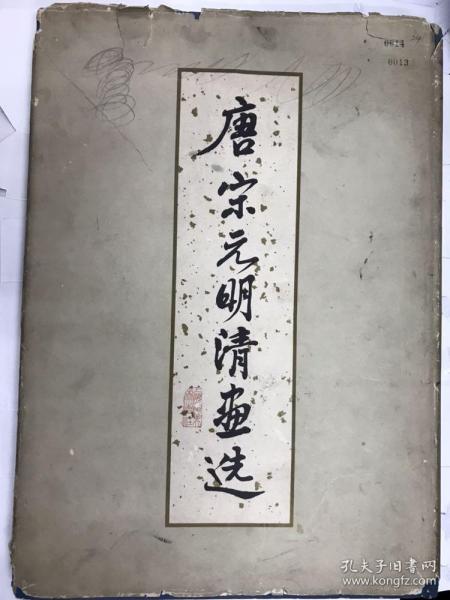 0014
24
0013
唐宋元明清画选
孔夫子旧书网
www.kongfz.com